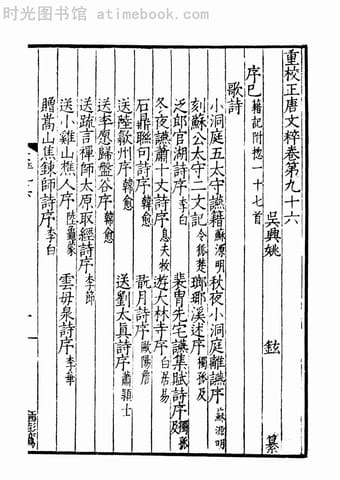 时光图书馆 www.atimebook.com
重校正唐文粹卷第九十六
吳興姚 鉉 纂
序己 籍記附揔一十七首
歌詩
小洞庭五太守讌籍 蘇源明 秋夜小洞庭離讌序 蘇源明
刻蘇公太守二文記 令狐楚 瑯瑘溪述序 獨孤及
泛郎官湖詩序 李白 裴胄先宅讌集賦詩序 獨孤及
冬夜讌蕭十丈詩序 息夫牧 遊大林寺序 白居易
石鼎聯句詩序 韓愈 翫月詩序 歐陽詹
送陸歙州序 韓愈 送劉太真詩序 蕭穎士
送李愿歸盤谷序 韓愈
送疏言禪師太原取經詩序 李節
送小雞山樵人序 陸龜蒙 雲毋泉詩序 李華
贈嵩山焦鍊師詩序 李白